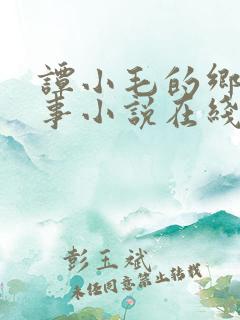 譚小毛的鄉
事小說在綫
彭玉斌
未经同意禁止转载